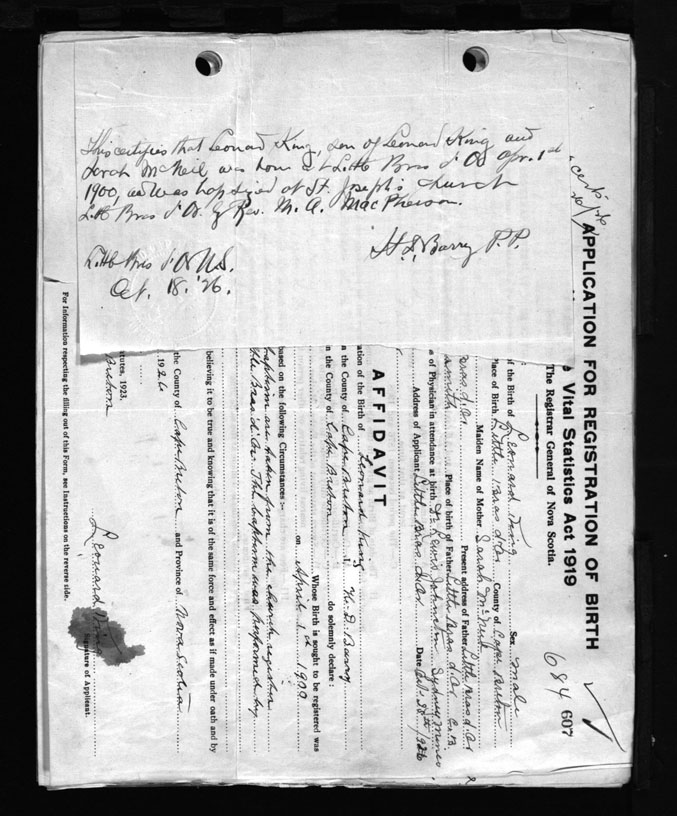 This certifies that Leonard King, son of Leonard King and
Sarah McNeil was born at Little Bras d'Or Apr. 1st
1900, and was baptized at St. Joseph's Church
Little Bras d'Or by Rev. M. A. MacPherson.
H. D. Barry P.P.
Little Bras d'Or N.S.
Oct. 18. '26.
APPLICATION FOR REGISTRATION OF BIRTH
Vital Statistics Act 1919
The Registrar General of Nova Scotia.
684 607
of the Birth of Leonard King Sex male
Place of Birth Little Bras d'Or County of Cape Breton
Maiden Name of Mother Sarah McNeil
Bras d'Or Present address of Father Little Bras d'Or
Place of birth of Father Little Bras d'Or C.B.
of Physician in attendance at birth Dr. Lewis Johnston Sydney Mines
Address of Applicant Little Bras d'Or Date Oct. 20th 1926
AFFIDAVIT
ation of the Birth of Leonard King
n the County of Cape Breton I, H. D. Barry
n the County of Cape Breton do solemnly declare:
Whose Birth is sought to be registered was
on April 1st 1900
based on the following Circumstances:-
baptism are taken from the church register
The baptism was performed by
believing it to be true and knowing that it is of the same force and effect as if made under oath and by
tatutes, 1923.
the County of Cape Breton and Province of Nova Scotia
1926
Breton
Leonard King
Signature of Applicant.
For Information respecting the filling out of this Form, see Instructions on the reverse side.